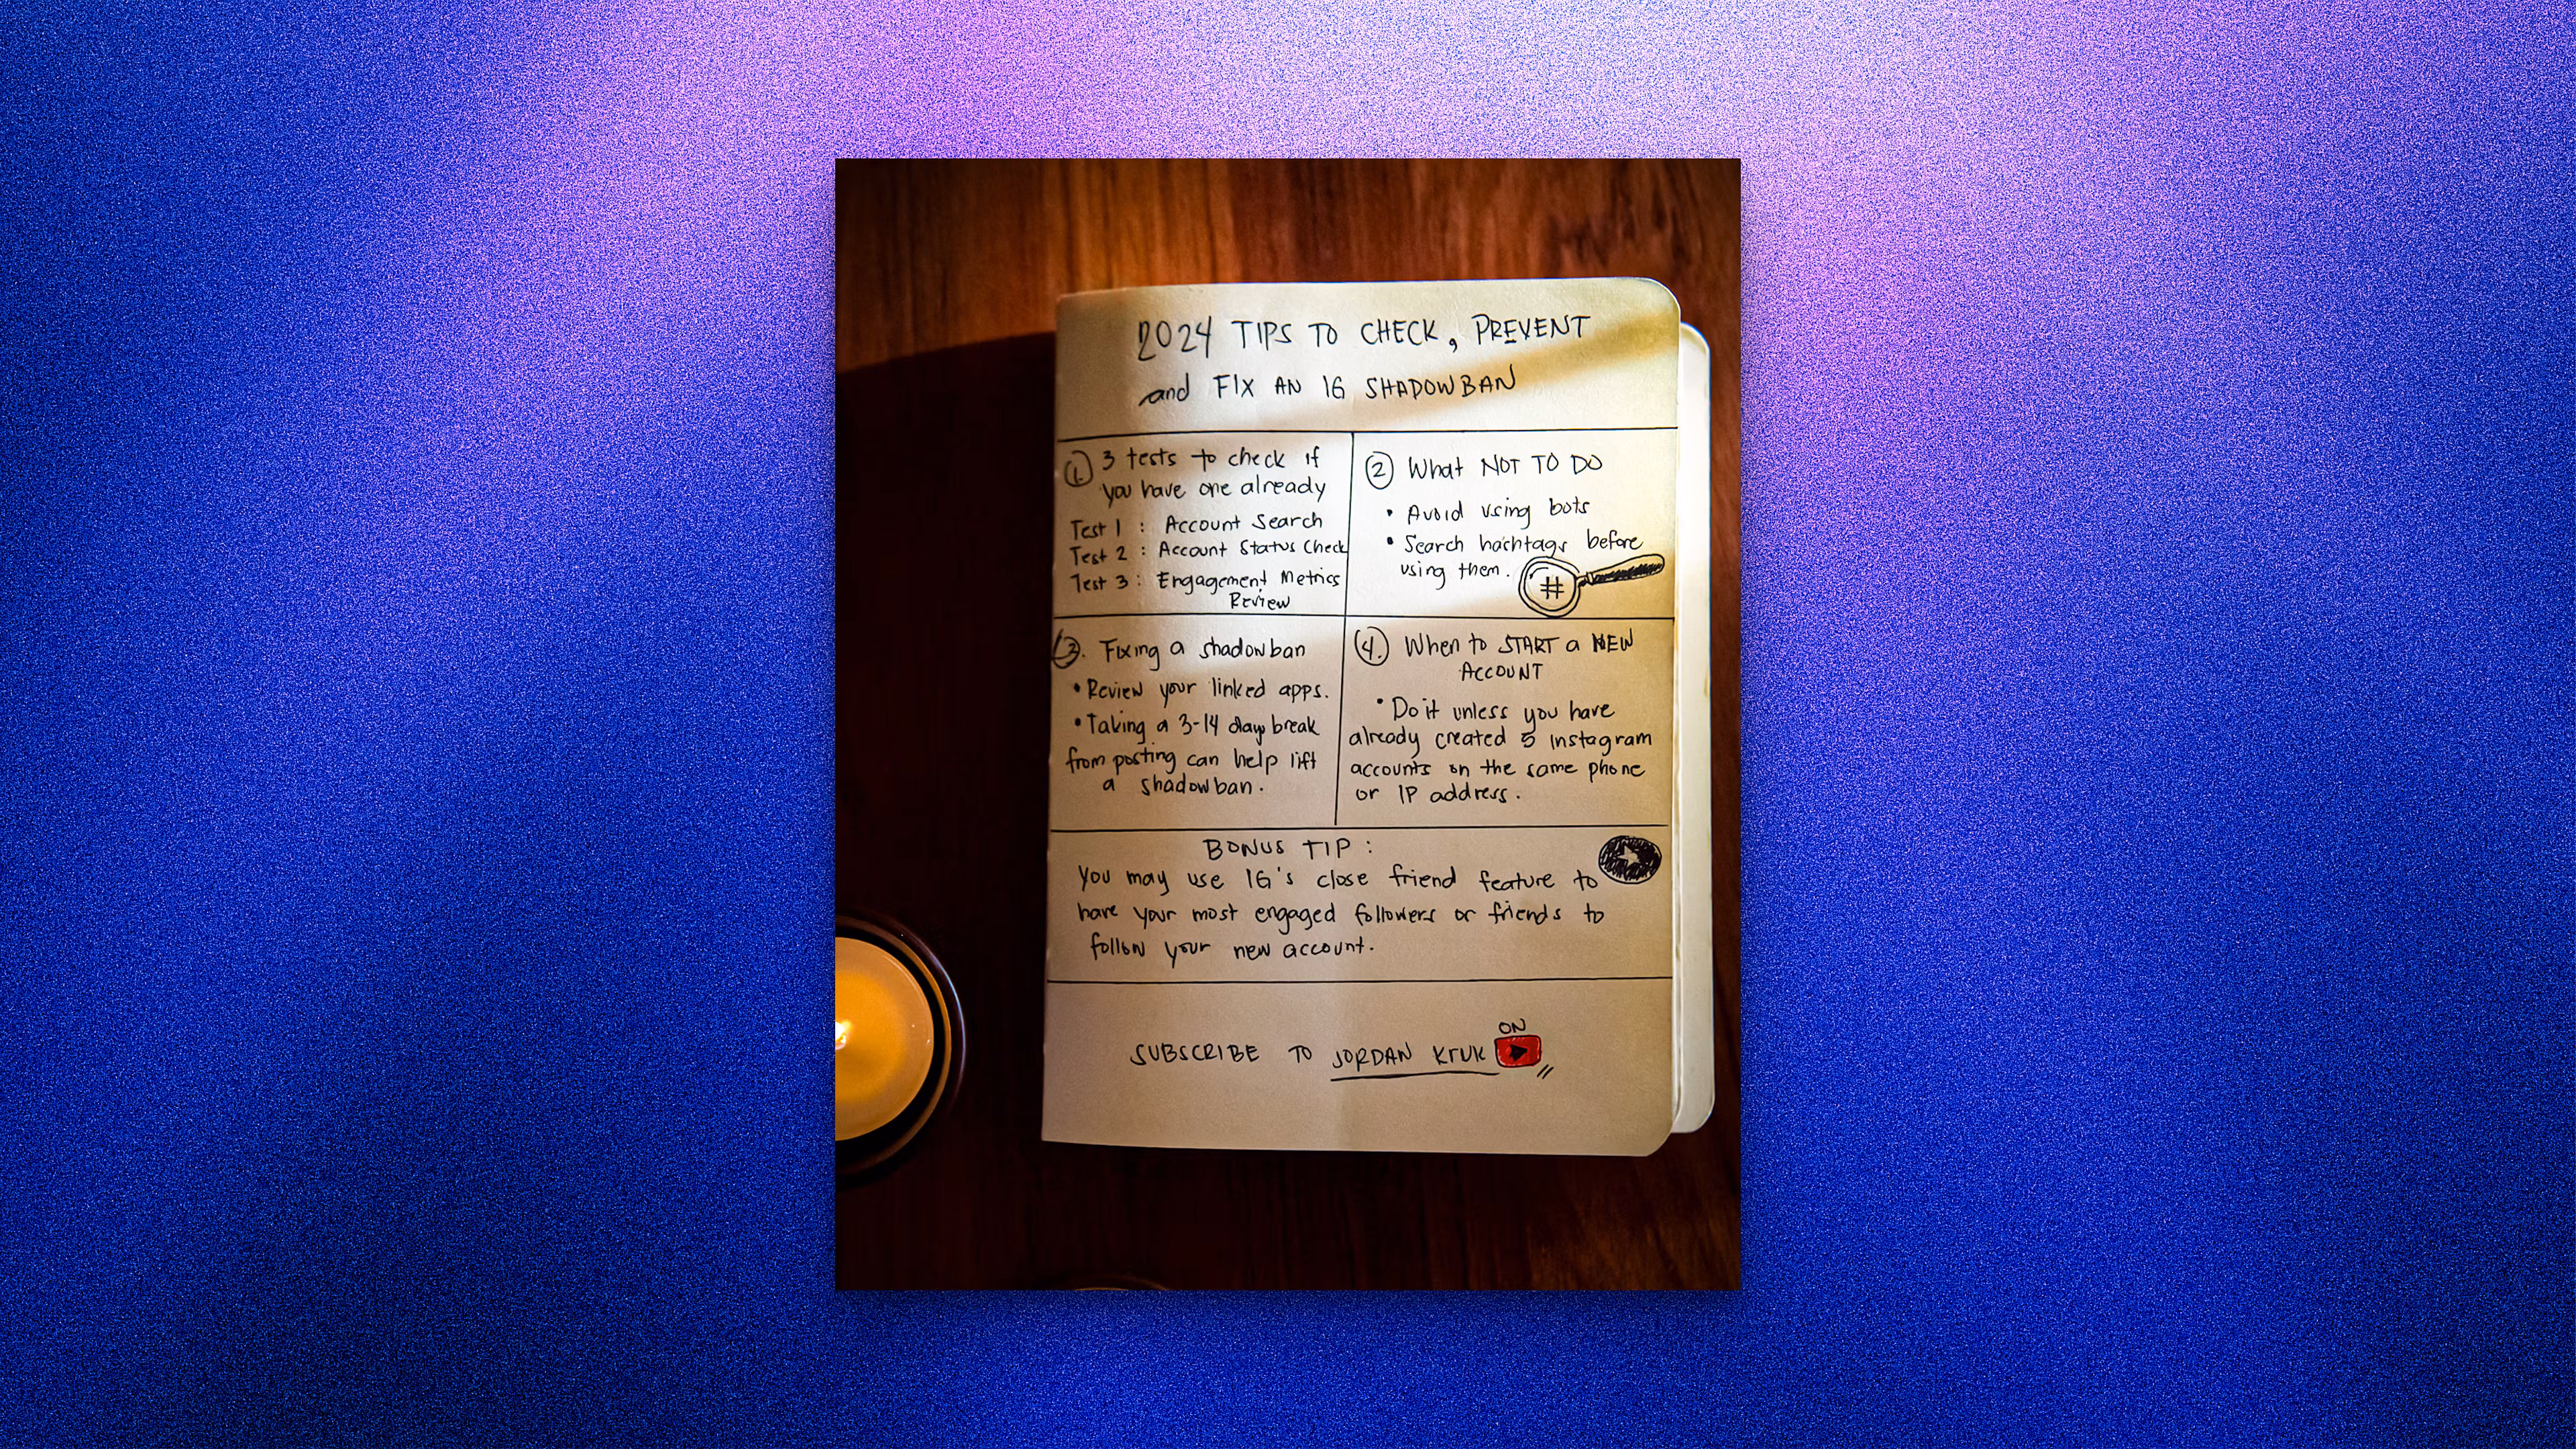 2024 TIPS TO CHECK, PREVENT
and FIX AN IG SHADOWBAN
1. 3 tests to check if
you have one already
Test 1 : Account Search
Test 2 : Account Status Check
Test 3 : Engagement Metrics
Review
2 What NOT TO DO
• Avoid using bots
• Search hashtags before
using them.
#
3. Fixing a shadowban
• Review your linked apps.
• Taking a 3-14 day break
from posting can help lift
a shadowban.
4. When to START a NEW
ACCOUNT
• Do it unless you have
already created 5 instagram
accounts on the same phone
or IP address.
BONUS TIP :
You may use IG's close friend feature to
have your most engaged followers or friends to
follow your new account.
ON
SUBSCRIBE TO JORDAN KRUK